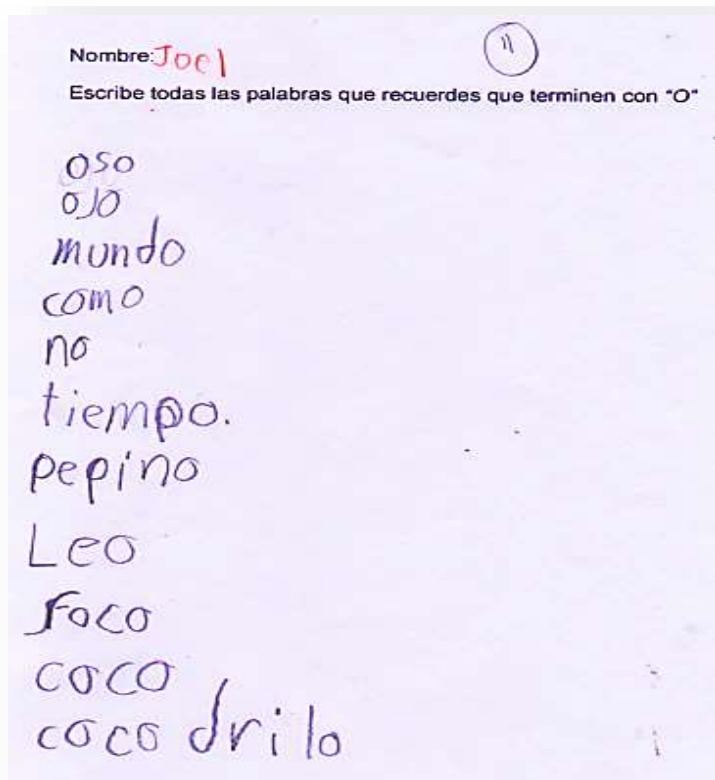 Nombre: Joel
11
Escribe todas las palabras que recuerdes que terminen con "O"
oso
ojo
mundo
como
no
tiempo.
pepino
Leo
foco
coco
coco drilo